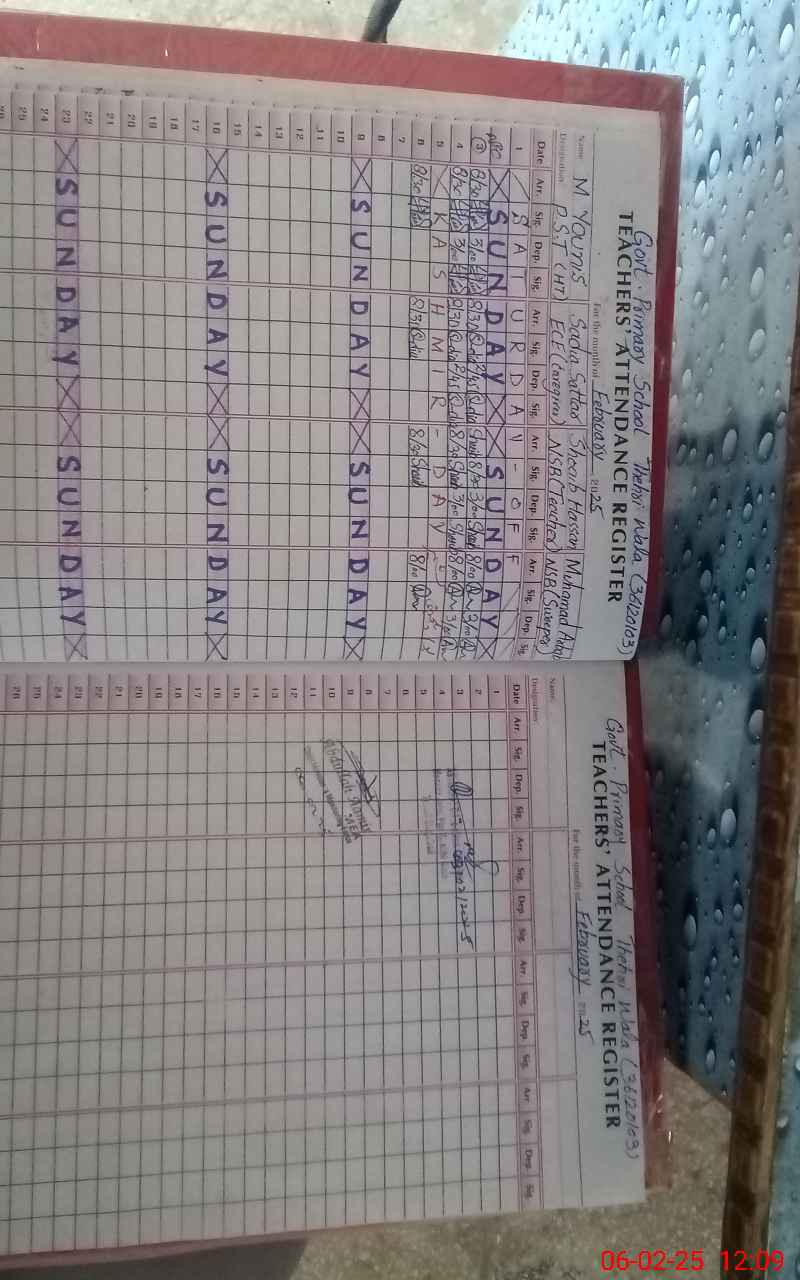 Govt. Primary School Thehri Wala (36120103)
TEACHERS' ATTENDANCE REGISTER
For the month of February 2025
Name M YOUNIS Sadia Sattar Shoaib Hassan Muhamad
Designation P.S.T (HT) ECE (Caregiver) NSB (Teacher) NSB (Sweeper)
Date Arr. Sig. Dep. Sig. Arr. Sig. Dep. Sig. Arr. Sig. Dep. Sig. Arr. Sig. Dep. Sig.
1 SATURDAY - OFF
SUNDAY SUNDAY
3 8/30 3/00 8/30 2/45 8/30 3/00 8/00 3/00
4 8/30 3/00 8/30 2/45 8/30 3/00 8/00 3/00
5 KASHMIR - DAY
6 8/30 8/30 8/30 8/00
7
8
9 SUNDAY SUNDAY
10
11
12
13
14
15
16 SUNDAY SUNDAY
17
18
19
20
21
22
23 SUNDAY SUNDAY
24
25
Govt. Primary School Thehri Wala (36120103)
TEACHERS' ATTENDANCE REGISTER
For the month of February 2025
Name
Designation
Date Arr. Sig. Dep. Sig. Arr. Sig. Dep. Sig. Arr. Sig. Dep. Sig. Arr. Sig. Dep. Sig.
1
2
3
4
5
6
7
8
9
10
11
12
13
14
15
16
17
18
19
20
21
22
23
24
25
26
Abdullah
MEA
06-02-25 12:09